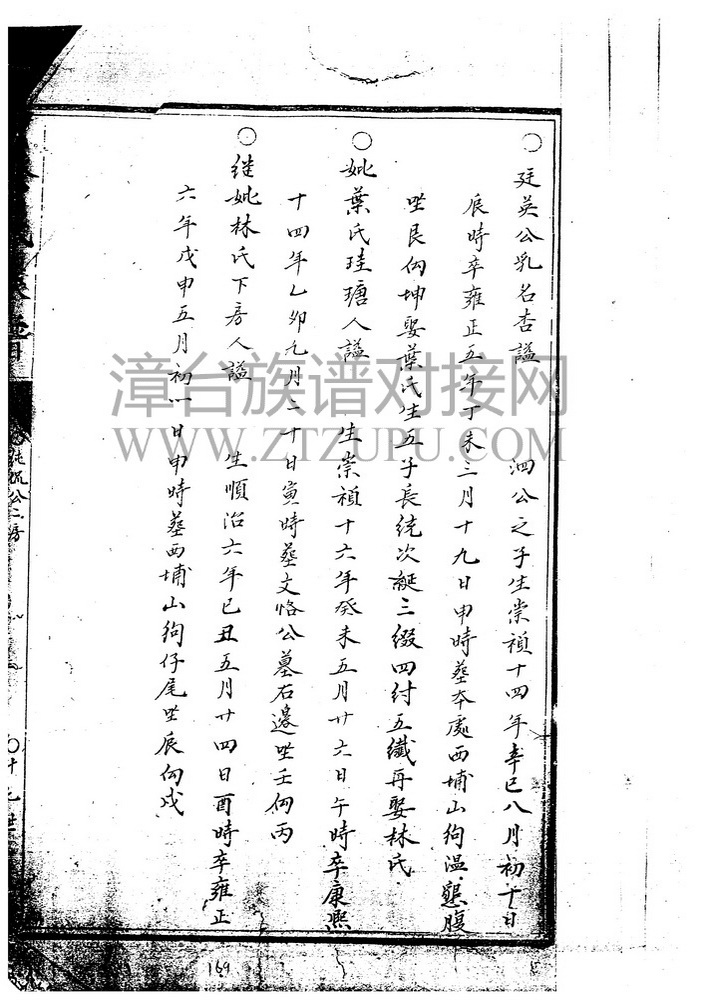 ○ 廷英公乳名杏謚 泗公之子生崇禎十四年辛巳八月初十日
辰時卒雍正五年丁未三月十九日申時葬本處西埔山狗温墾腹
坐艮向坤娶葉氏生五子長統次綖三綴四紂五纖再娶林氏
○ 妣葉氏珪瑭人謚 生崇禎十六年癸未五月廿六日午時卒康熙
十四年乙卯九月二十日寅時葬文恪公墓右邊坐壬向丙
○ 继妣林氏下房人謚 生順治六年己丑五月廿四日酉時卒雍正
六年戊申五月初八日申時葬西埔山狗仔尾坐辰向戌
公二房
漳台族谱对接网
WWW.ZTZUPU.COM
169